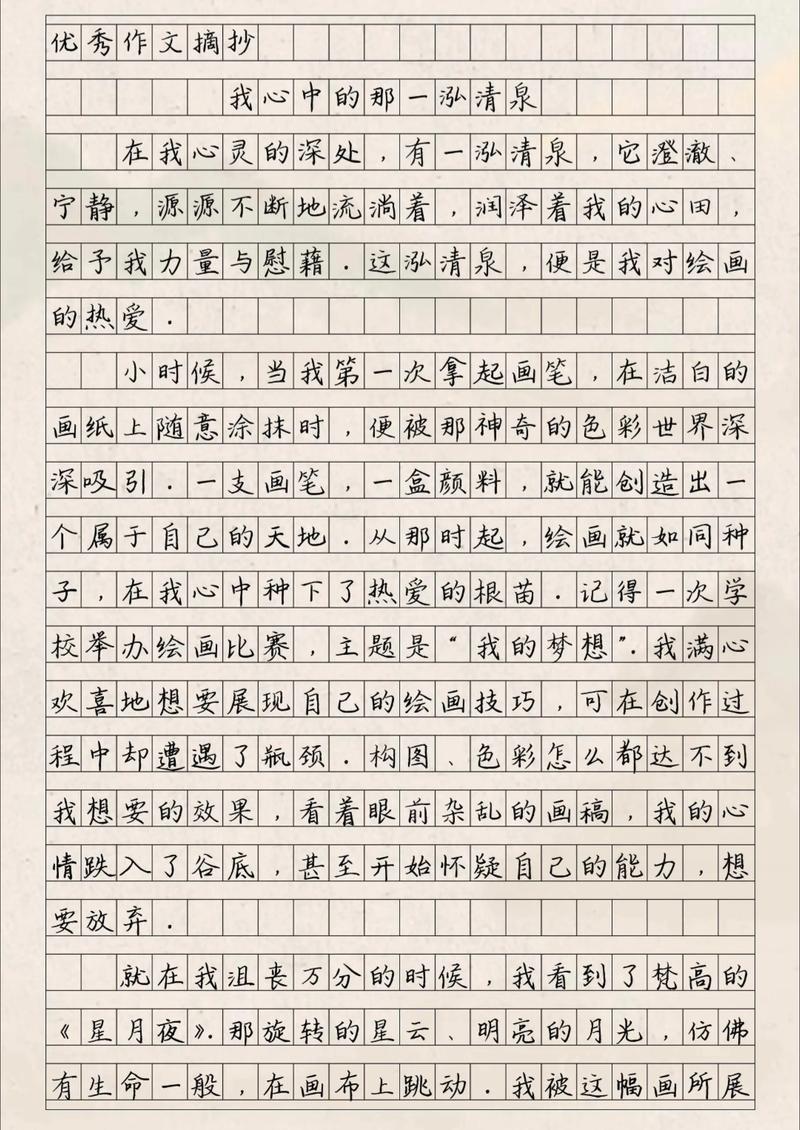 优秀作文摘抄
我心中的那一泓清泉
在我心灵的深处，有一泓清泉，它澄澈、
宁静，源源不断地流淌着，润泽着我的心田，
给予我力量与慰藉．这泓清泉，便是我对绘画
的热爱．
小时候，当我第一次拿起画笔，在洁白的
画纸上随意涂抹时，便被那神奇的色彩世界深
深吸引．一支画笔，一盒颜料，就能创造出一
个属于自己的天地．从那时起，绘画就如同种
子，在我心中种下了热爱的根苗．记得一次学
校举办绘画比赛，主题是“我的梦想”．我满心
欢喜地想要展现自己的绘画技巧，可在创作过
程中却遭遇了瓶颈．构图、色彩怎么都达不到
我想要的效果，看着眼前杂乱的画稿，我的心
情跌入了谷底，甚至开始怀疑自己的能力，想
要放弃．
就在我沮丧万分的时候，我看到了梵高的
《星月夜》．那旋转的星云、明亮的月光，仿佛
有生命一般，在画布上跳动．我被这幅画所展